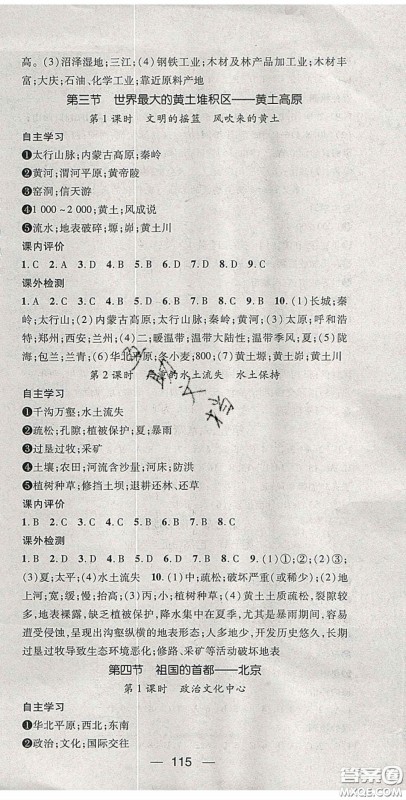 高。(3)沼泽湿地;三江;(4)钢铁工业;木材及林产品加工业;木材丰
富;大庆;石油、化学工业;靠近原料产地
第三节 世界最大的黄土堆积区——黄土高原
第1课时 文明的摇篮 风吹来的黄土
自主学习
❶太行山脉;内蒙古高原;秦岭
❷黄河;渭河平原;黄帝陵
❸窑洞;信天游
❹1 000~2 000;黄土;风成说
❺流水;地表破碎;塬;峁;黄土川
课内评价
1. C 2. A 3. D 4. B 5. D 6. D 7. C
课外检测
1. C 2. A 3. D 4. B 5. B 6. B 7. D 8. B 9. C 10. (1)长城;秦
岭,太行山脉;(2)内蒙古高原;太原;郑州;西安;太原;呼和浩
特;郑州;西安;兰州;(2)暖温带;温带大陆性;温带季风;夏;(5)陇
海;包兰;兰青(6)华北平原;冬小麦;800;(7)黄土塬;黄土峁;黄土川
第2课时 的水土流失 水土保持
自主学习
❶千沟万壑;水土流失
❷疏松;孔隙;植被保护;夏;暴雨
❸过垦过牧;采矿
❹土壤;农田;河流含沙量;河床;防洪
❺植树种草;修挡土坝;退耕还林、还草
课内评价
1. B 2. C 3. D 4. B 5. B 6. D 7. B
课外检测
1. B 2. D 3. D 4. A 5. C 6. B 7. C 8. B 9. (1)①;②;(2)③;
(3)夏;太平;(4)水土流失 10. (1)中;疏松;破坏严重(或稀少);
(2)夏;暴雨;(3)植树种草(或植树造林);(4)黄土土质疏松,裂隙较
多,地表裸露,缺乏植被保护,降水集中在夏季,又多暴雨,因而容易
遭受侵蚀,呈现出沟壑纵横的地表形态;人类长期以来对黄土高原
过垦过牧导致生态环境恶化;修路、采矿等活动破坏地表
第四节 祖国的首都——北京
第1课时 政治文化中心
自主学习
❶华北平原;西北;东南
❷政治;文化;国际交往
— 115 —
答案圈
MXQE.COM